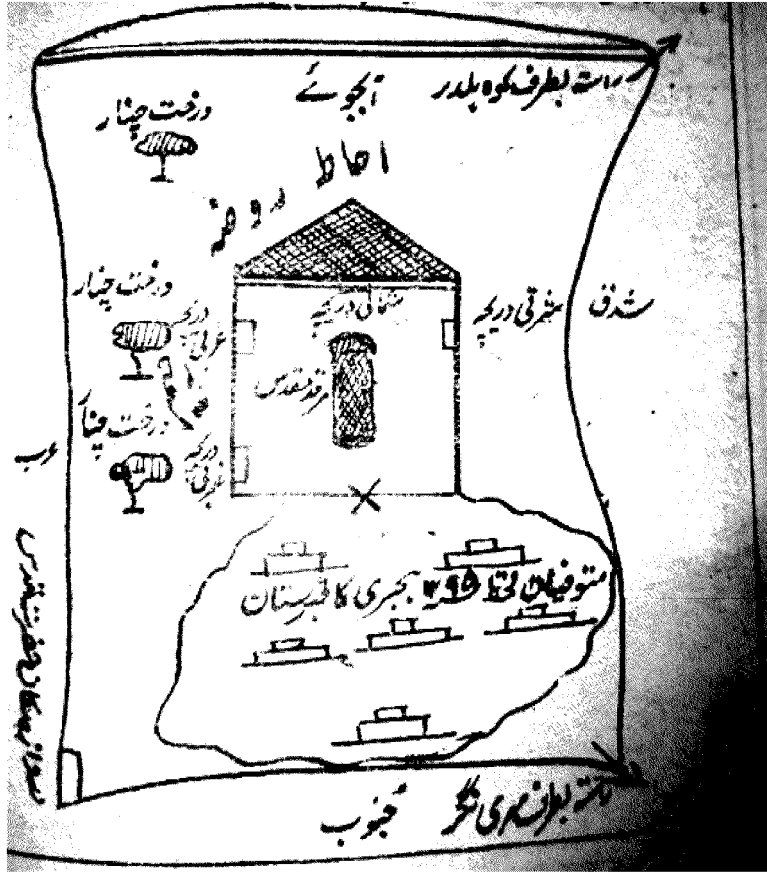 راستہ بطرف کوہ پلدر
آبجوئے
درخت چنار
احاطہ
روضہ
درخت چنار
غربی دریچہ
شمالی دریچہ
شرقی دریچہ
شرق
مرقد مقدس
درخت چنار
غربی دریچہ
غرب
متوفیان لتہ ۱۳۹۵ ہجری کا قبرستان
راستہ بطرف سری نگر
جنوب